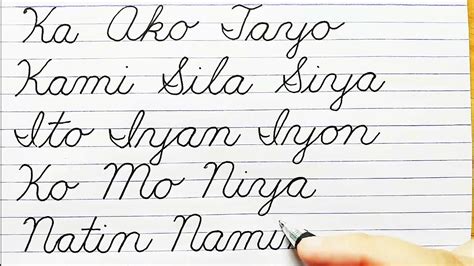 Ka Ako Tayo
Kami Sila Siya
Ito Iyan Iyon
Ko Mo Niya
Natin Nami